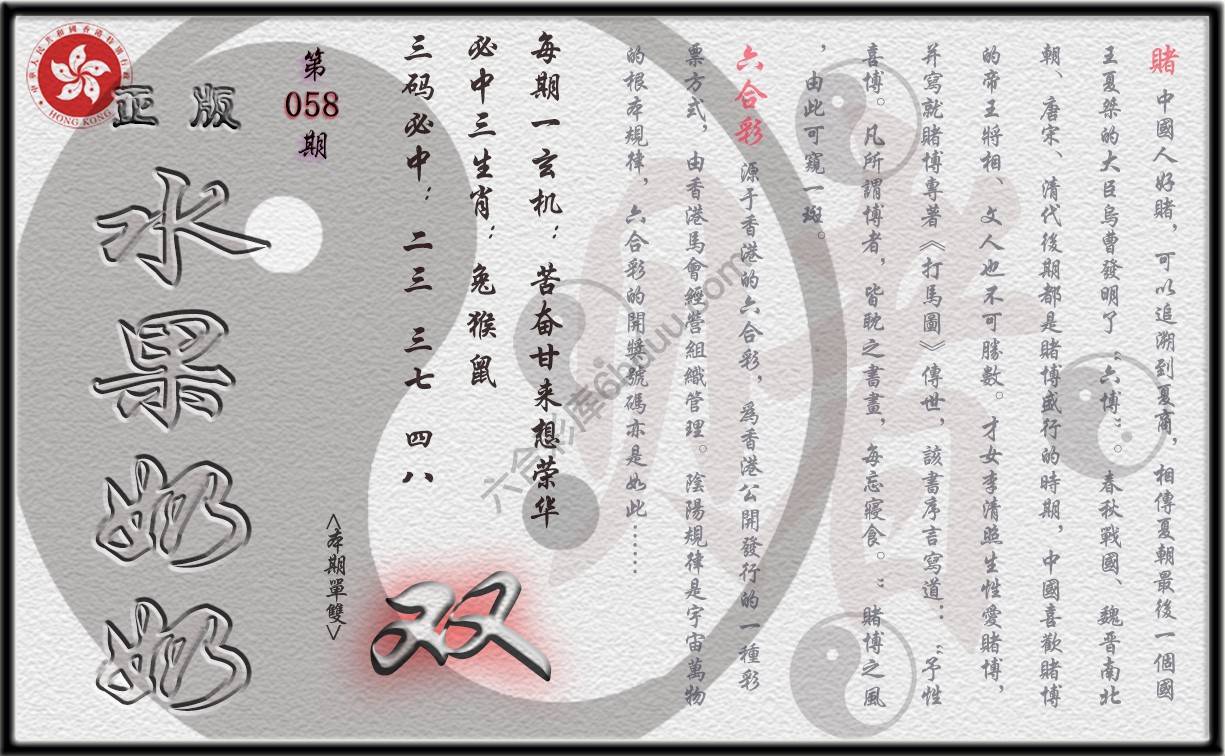 賭 中國人好賭，可以追溯到夏商，相傳夏朝最後一個國
王夏桀的大臣烏曹發明了“六博”。春秋戰國、魏晋南北
朝、唐宋、清代後期都是賭博盛行的時期，中國喜歡賭博
的帝王將相、文人也不可勝數。才女李清照生性愛賭博，
并寫就賭博專著《打馬圖》傳世，該書序言寫道：“予性
喜博。凡所謂博者，皆眈之書畫，每忘寢食。”賭博之風
，由此可窺一斑。
六合彩 源于香港的六合彩，爲香港公開發行的一種彩
票方式，由香港馬會經營組織管理。陰陽規律是宇宙萬物
的根本規律，六合彩的開獎號碼亦是如此……
每期一玄机：苦奋甘来想荣华
必中三生肖：兔猴鼠
三码必中：二三 三七 四八
<本期單雙>
双
第
058
期
正版
水果奶奶
HONG KONG
六合彩库6hduu.com